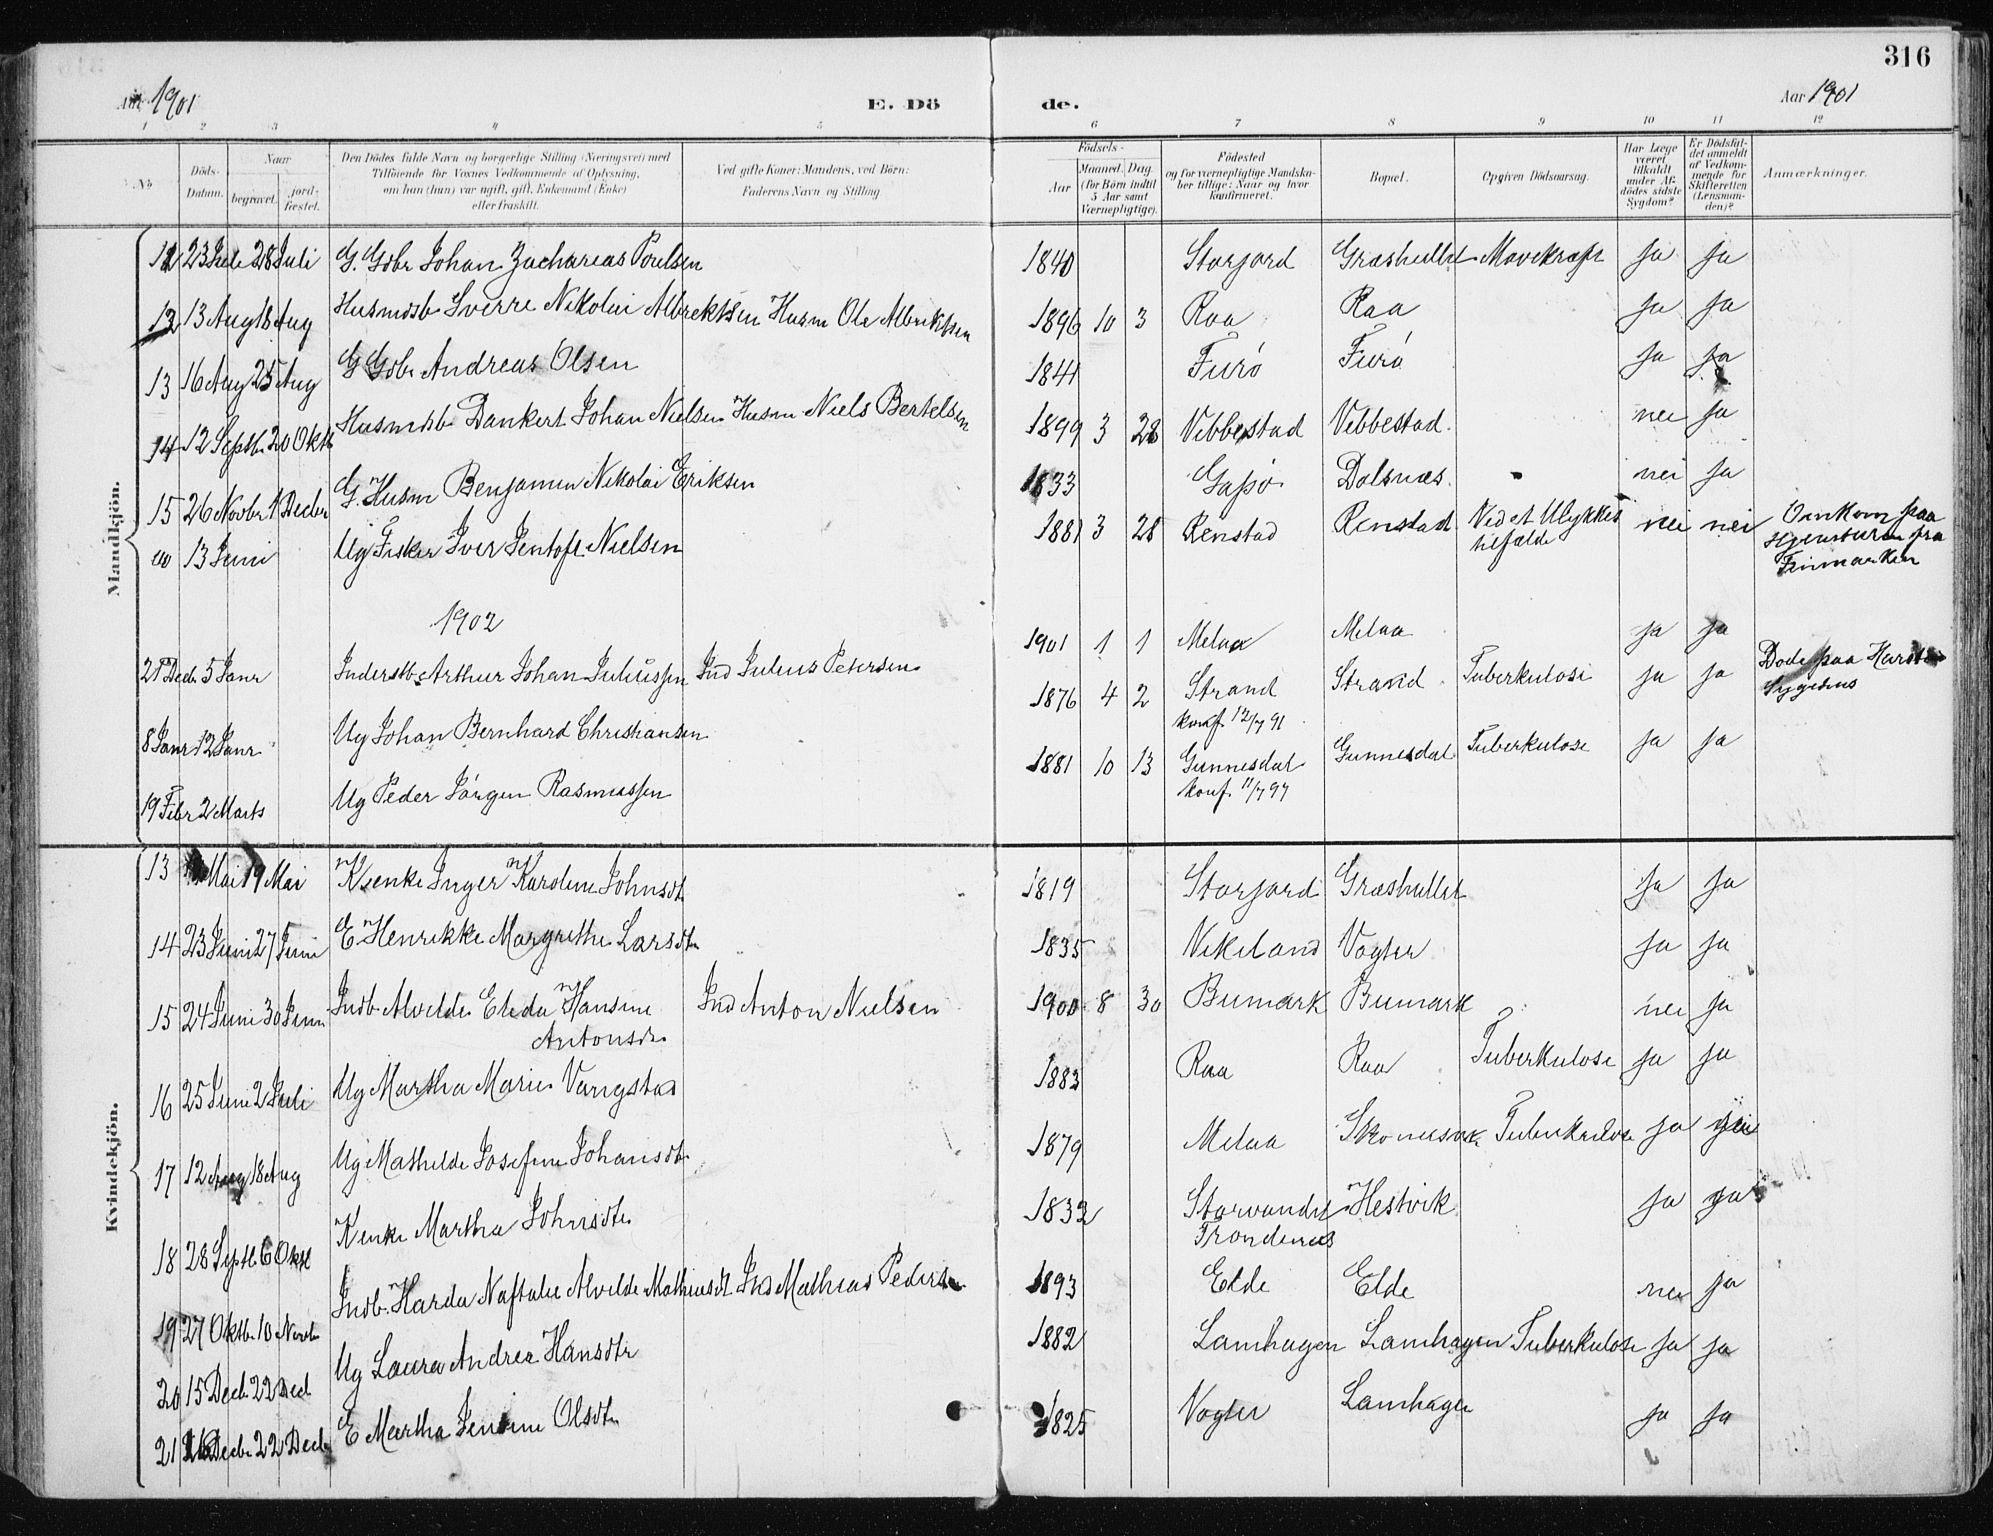 316
Aar 1901 E. Dö de. Aar 1901
1 2 3 4 5 6 7 8 9 10 11 12
No. Döds-Datum. Naar begravet. jordfæstet. Den Dödes fulde Navn og borgerlige Stilling (Næringsvei) med Tilföiende for Voxnes Vedkommende af Oplysning, om han (hun) var ugift, gift, Enkemand (Enke) eller fraskilt. Ved gifte Koner: Mandens, ved Börn: Faderens Navn og Stilling Födsels- Aar Maaned. Dag. (for Börn indtil 5 Aar samt Værnepligtige). Födested og for værnepligtige Mandskaber tillige: Naar og hvor konfirmeret. Bopæl. Opgiven Dödsaarsag. Har Læge været tilkaldt under Afdödes sidste Sygdom? Er Dödsfaldet anmeldt af Vedkommende for Skifteretten (Lensmanden)? Anmærkninger.
Mandkjön.
12 23 Juli 28 Juli G. Gdbr Johan Zacharias Poulsen 1840 Storjord Græshullet Mavekræft ja ja
13 13 Aug 18 Aug Husmdsb Sverre Nikolai Albrektsen Husm Ole Albrektsen 1896 10 3 Raa Raa ja ja
13 16 Aug 25 Aug G Gdbr Andreas Olsen 1841 Furö Furö ja ja
14 12 Septb. 20 Oktb Husmdsb Dankert Johan Nielsen Husm Niels Bertelsen 1899 3 28 Vibbestad Vibbestad. nei ja
15 26 Novbr 1 Decbr G. Husm Benjamin Nikolai Eriksen 1833 Gapö Dalsnæs nei ja
13 Juni Ug Fisker Iver Jentoft Nielsen 1881 3 28 Renstad Renstad Ved et Ulykkestilfælde nei nei Omkom paa Hjemturen fra Finmarken
1902
21 Decb 5 Janr Inderstb. Arthur Johan Juliussen Ind Julius Petersen 1901 1 1 Melaa Melaa ja ja
8 Janr 12 Janr Ug Johan Bernhard Christiansen 1876 4 2 Strand konf. 12/7 91 Strand Tuberkulose ja ja Döde paa Harstad Sygehus
19 Febr 2 Marts Ug Peder Jörgen Rasmussen 1881 10 13 Gunnesdal konf. 11/7 97 Gunnesdal Tuberkulose ja ja
Kvindekjön.
13 Mai 19 Mai Kvenke Inger Karoline Johnsdt 1819 Storjord Græshullet ja ja
14 23 Juni 27 Juni E Henrikke Margrethe Larsdt 1835 Vikeland Vogter ja ja
15 24 Juni 30 Juni Indb. Alvilde Elida Hansine Antonsdr Ind Anton Nielsen 1900 8 30 Bumark Bumark nei ja
16 25 Juni 2 Juli Ug Martha Marie Vangstad 1883 Raa Raa Tuberkulose ja ja
17 12 Aug 18 Aug Ug Mathilde Josefine Johansdt 1879 Melaa Tuberkulose ja
18 28 Septb. 6 Oktb Kvenke Martha Johnsdtr 1832 Storvandet Trondenes Hestvik ja ja
19 27 Oktb. 10 Novb Indb. Harda Naftalie Alvilde Mathiasdt Ind Mathias Peders 1893 Elde Elde nei ja
20 15 Decb. 22 Decb Ug Laura Andrea Hansdtr 1882 Lamhagen Lamhagen Tuberkulose ja ja
21 Decbr 22 Decb E Martha Jensine Olsdtr 1825 Vogter Lamhagen ja ja